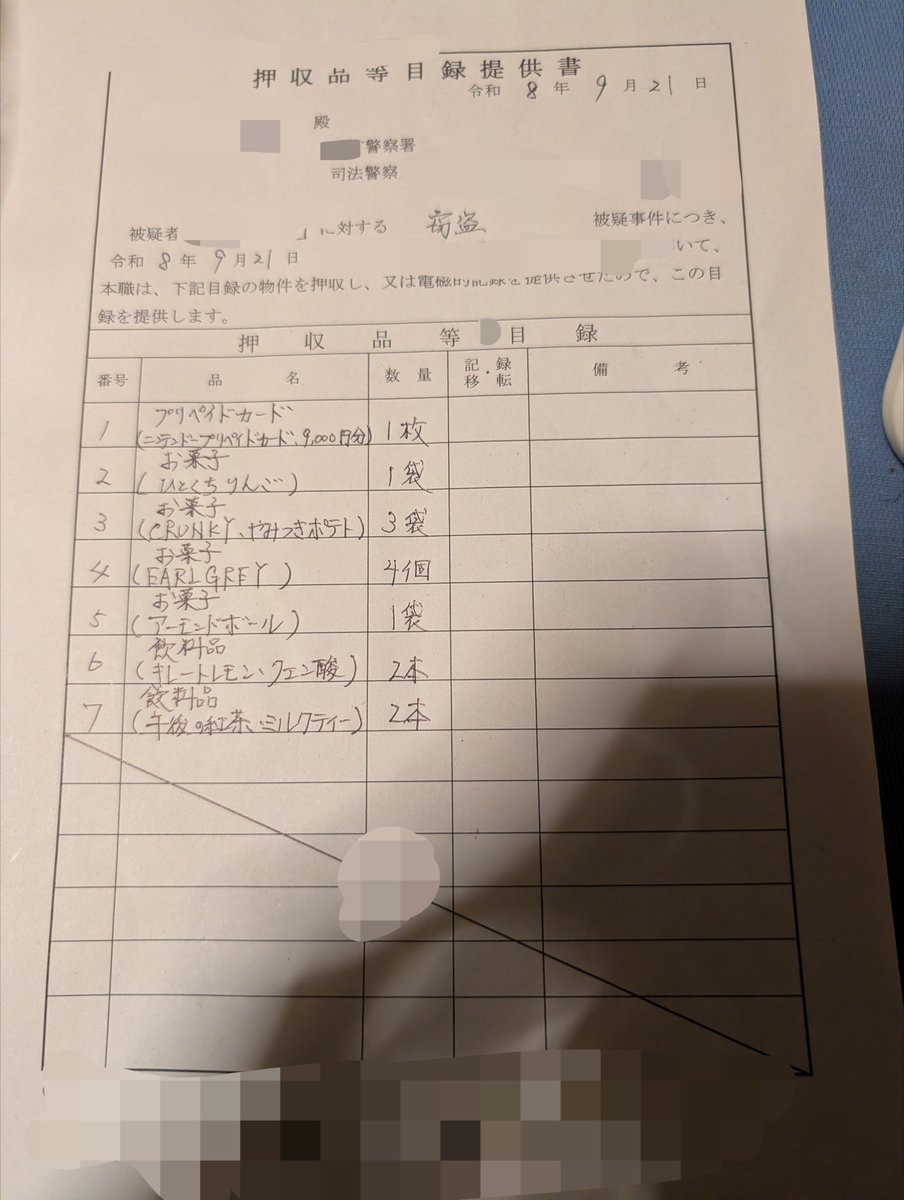 押収品等目録提供書
令和 8 年 9 月 21 日
殿
警察署
司法警察
被疑者 に対する 窃盗 被疑事件につき、
令和 8 年 9 月 21 日 いて、
本職は、下記目録の物件を押収し、又は電磁的記録を提供させたので、この目
録を提供します。
押収品等目録
番号 品名 数量 記録・移転 備考
1 プリペイドカード
(ニンテンドープリペイドカード、9,000円分) 1枚
2 お菓子
(ひとくちりんご) 1袋
3 お菓子
(CRUNKY、やみつきポテト) 3袋
4 お菓子
(EARL GREY) 4個
5 お菓子
(アーモンドボール) 1袋
6 飲料品
(キレートレモン・クエン酸) 2本
7 飲料品
(午後の紅茶、ミルクティー) 2本